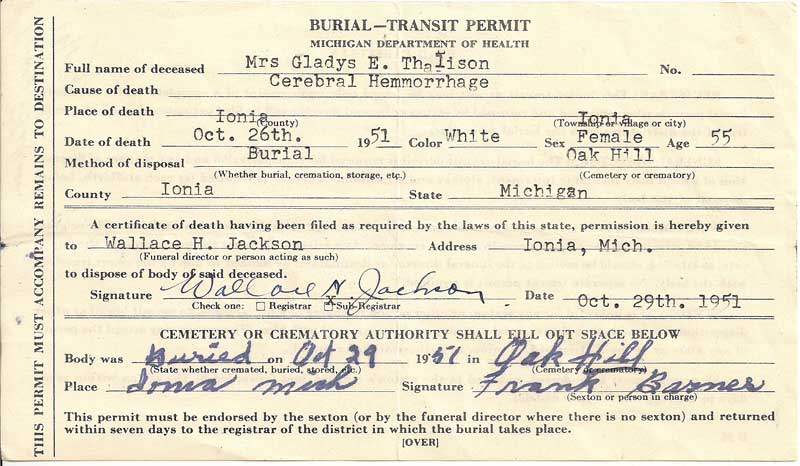 BURIAL—TRANSIT PERMIT
MICHIGAN DEPARTMENT OF HEALTH
Full name of deceased Mrs Gladys E. Thalison No.
Cause of death Cerebral Hemmorrhage
Place of death Ionia Ionia
(County) (Township or village or city)
Date of death Oct. 26th. 1951 Color White Sex Female Age 55
Method of disposal Burial Oak Hill
(Whether burial, cremation, storage, etc.) (Cemetery or crematory)
County Ionia State Michigan
A certificate of death having been filed as required by the laws of this state, permission is hereby given
to Wallace H. Jackson Address Ionia, Mich.
(Funeral director or person acting as such)
to dispose of body of said deceased.
Signature Wallace H. Jackson Date Oct. 29th. 1951
Check one: ☐ Registrar ☒ Sub-Registrar
CEMETERY OR CREMATORY AUTHORITY SHALL FILL OUT SPACE BELOW
Body was Buried on Oct 29 1951 in Oak Hill
(State whether cremated, buried, stored, etc.) (Cemetery or crematory)
Place Ionia Mich Signature Frank Barner
(Sexton or person in charge)
This permit must be endorsed by the sexton (or by the funeral director where there is no sexton) and returned
within seven days to the registrar of the district in which the burial takes place.
[OVER]
THIS PERMIT MUST ACCOMPANY REMAINS TO DESTINATION